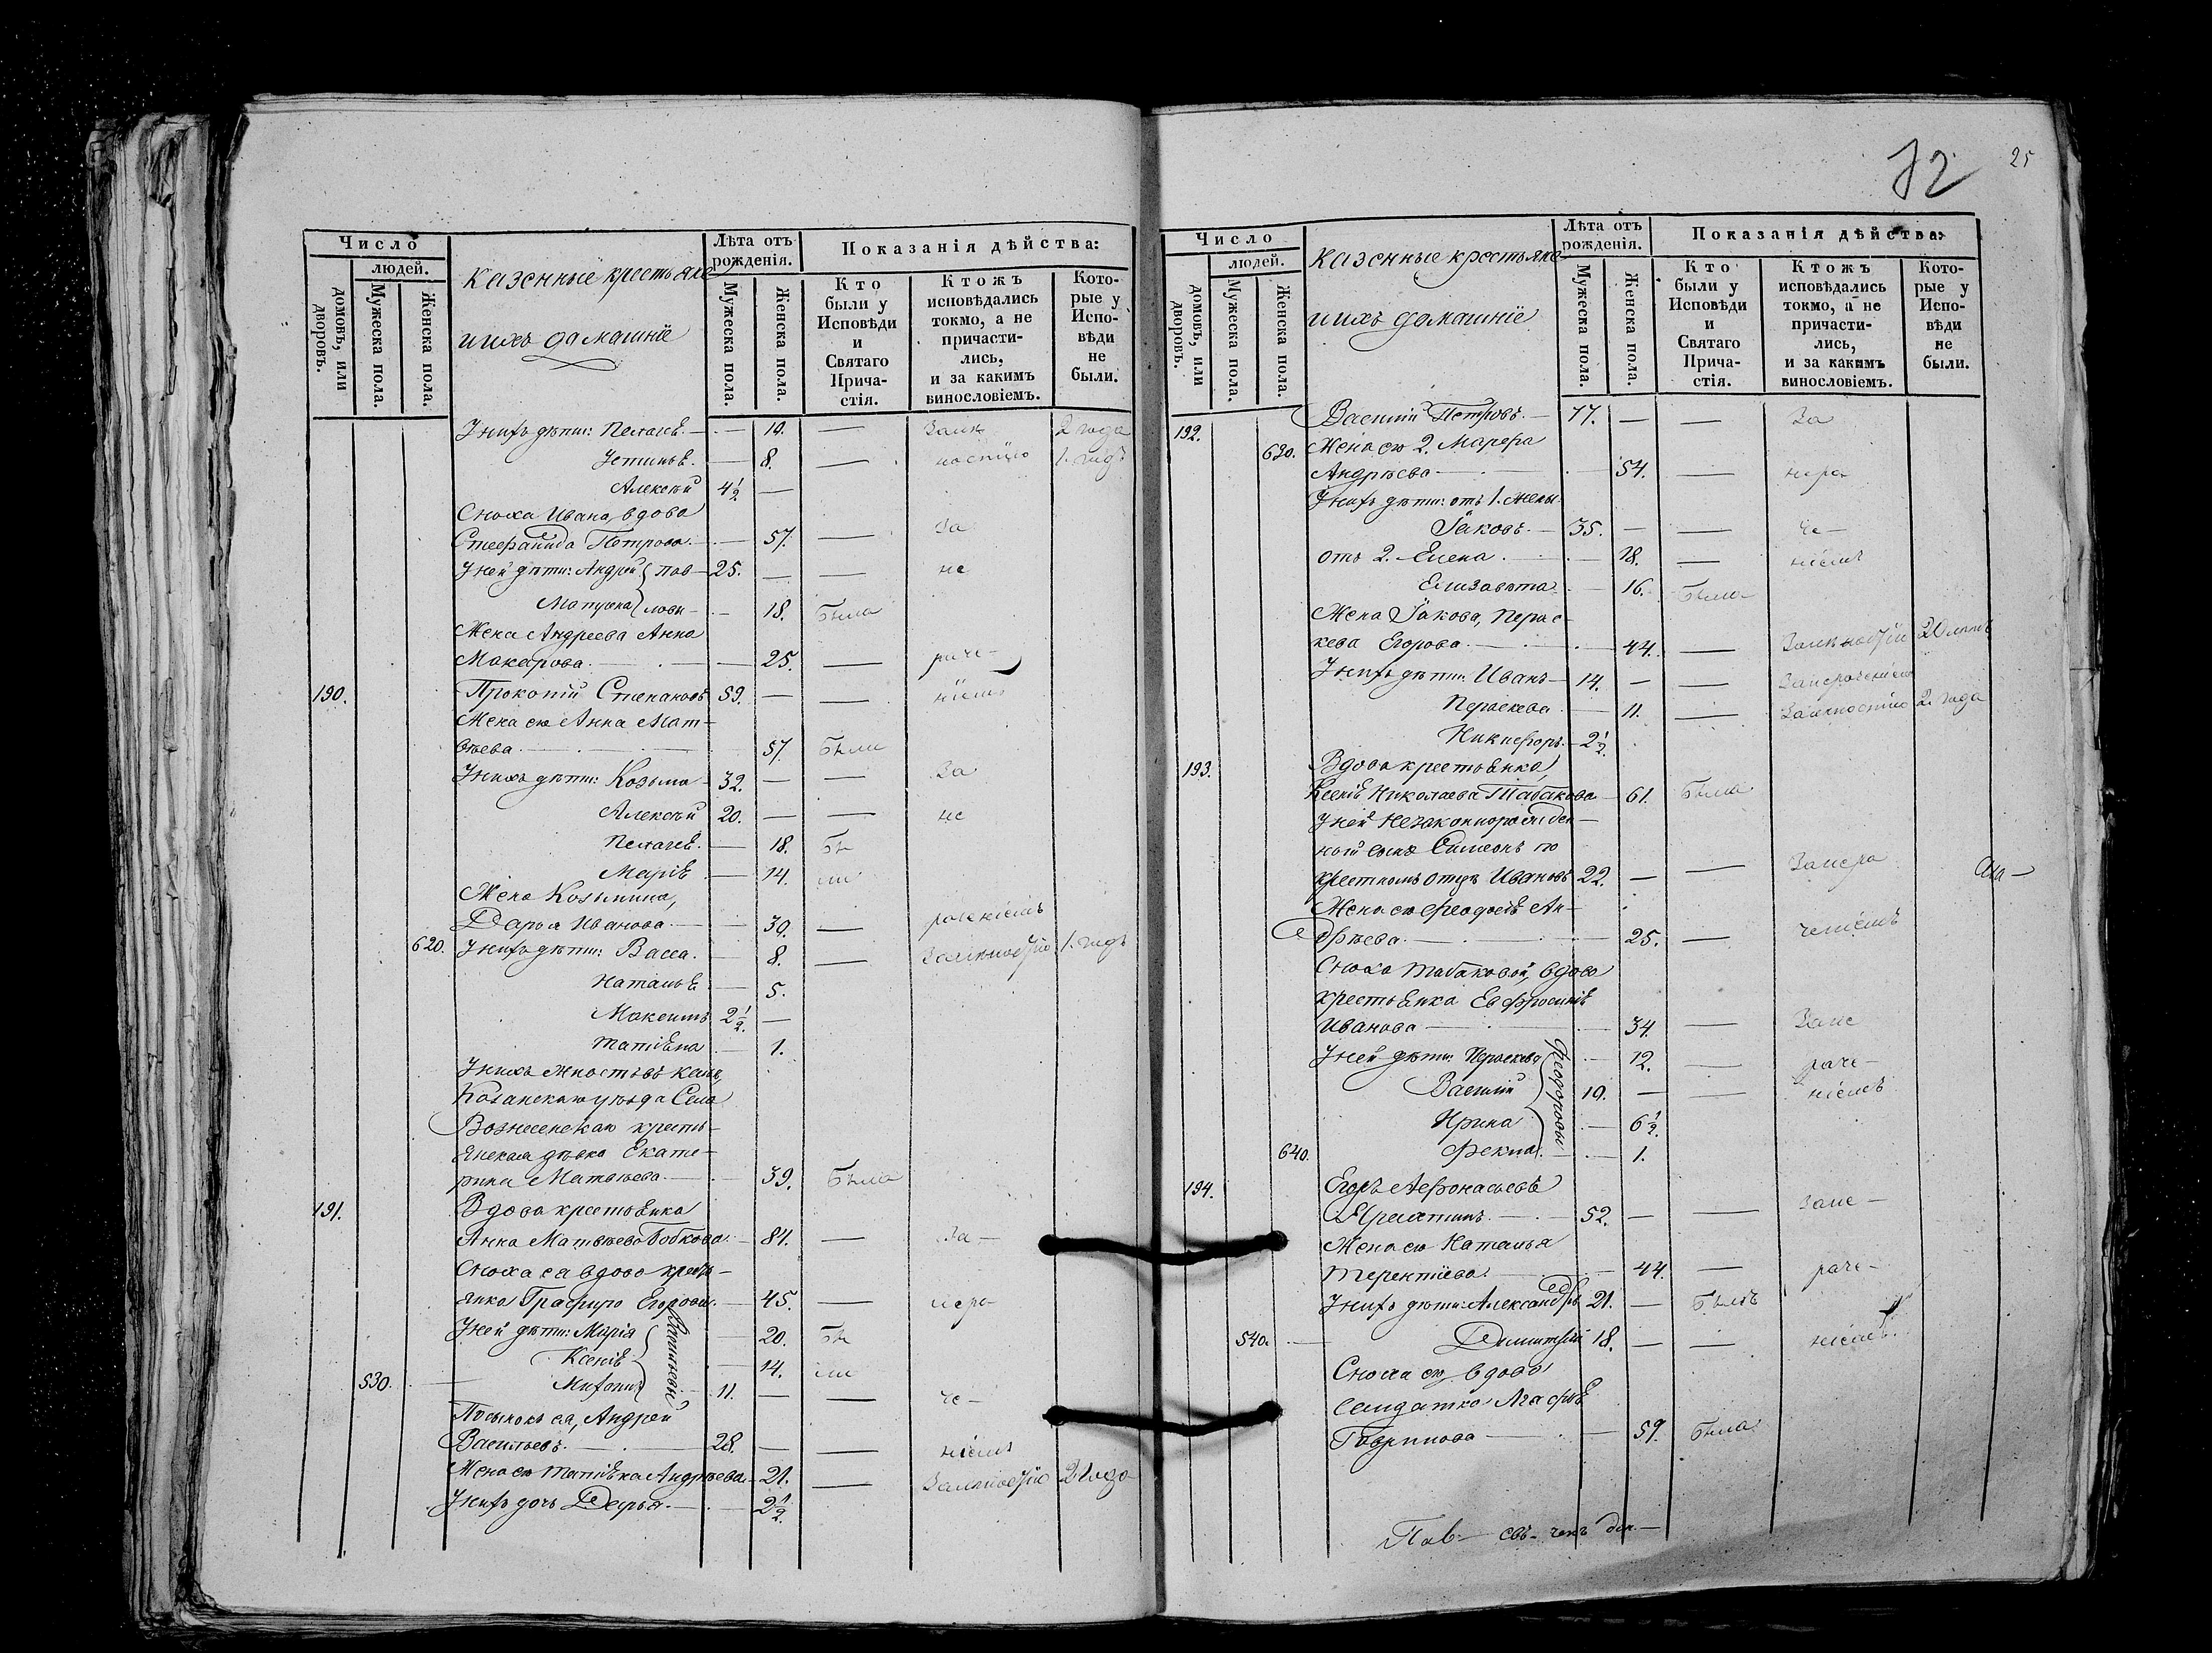 Число
людей.
домовъ, или дворовъ.
Мужеска пола.
Женска пола.
Казенные крестьяне
и ихъ домашніе
Лѣта отъ рожденія.
Мужеска пола.
Женска пола.
Показанія дѣйства:
Кто были у Исповѣди и Святаго Причастія.
Ктожъ исповѣдались токмо, а не причастились, и за какимъ винословіемъ.
Которые у Исповѣди не были.
У нихъ дѣти: Пелагея. — 10. — Замѣ 2 года
Устинья. — 8. — ностію 1. годъ
Алексѣй 4½ —
Сноха Ивана, вдова
Стефанида Петрова. — 57. — За
У ней дѣти: Андрей Пав- 25. — — не
Матрена ловы — 18. Была
Жена Андреева Анна
Макарова. — 25. — раче-
190. Прокопій Степановъ 59. — — ніемъ
Жена его Анна Мат-
вѣева. — 57. Были
У нихъ дѣти: Козьма 32. — — За
Алексѣй 20. — — не
Пелагея. — 18. Бы
Марія — 14. ли
Жена Козьмина,
Дарья Иванова. — 30. — раченіемъ
620. У нихъ дѣти: Васса. — 8. — 1. годъ
Наталья — 5.
Максимъ 2½. —
Татіяна — 1.
У нихъ
Казанскаго уѣзда Села
Вознесенскаго кресть-
янская дѣвка Екате-
рина Матвѣева. — 39. Была
191. Вдова крестьянка
Анна Матвѣева Бобкова. — 81. — За —
Сноха ея вдова кресть-
янка Егорова. — 45. — нера-
У ней дѣти: Марія — 20. Бы
Ксенія — 14. ли
530. — 11. — — че-
Васильевы
Пасынокъ ея, Андрей
Васильевъ. — 28. — — ніемъ
Жена его Татіяна Андрѣева. — 21. — 2 года
У нихъ дочь Дарья. — 2½.
72
25
Число
людей.
домовъ, или дворовъ.
Мужеска пола.
Женска пола.
Казенные крестьяне
и ихъ домашніе
Лѣта отъ рожденія.
Мужеска пола.
Женска пола.
Показанія дѣйства:
Кто были у Исповѣди и Святаго Причастія.
Ктожъ исповѣдались токмо, а не причастились, и за какимъ винословіемъ.
Которые у Исповѣди не были.
192. Василій Петровъ. — 77. — — За
630. Жена его 2. Марфа
Андрѣева — 54. — нера
У нихъ дѣти: отъ 1. жены
Іаковъ. — 35. — — че-
отъ 2. Елена. — 18. — ніемъ
Елизавета — 16. Была
Жена Іакова, Парас-
кева Егорова. — 44. — 20 лѣтъ
У нихъ дѣти: Иванъ — 14. — —
Параскева — 11. — 2. года
Никифоръ. — 2½
193. Вдова крестьянка,
Ксенія Николаева Табакова — 61. Была
У ней Незаконнорожден-
ной сынъ Симеонъ по
крестномъ отцѣ Ивановъ 22. — — Занера
Жена его Феодосія Ан-
дрѣева. — 25. — ченіемъ
Сноха Табаковой, вдова
крестьянка Евфросинія
Иванова — 34. — Зане
У ней дѣти: Параскева — 12. — раче-
Василій 10. — — ніемъ
Ирина — 6½.
640. Фекла. — 1.
Феодоровы
194. Егоръ Афонасьевъ
52. — — Зане —
Жена его Наталья
Терентіева. — 44. — раче-
У нихъ дѣти: Александръ 21. — Былъ
540. Димитрій 18. — — ніемъ.
Сноха его вдова
солдатка Агафья
Гаврилова — 59. Была